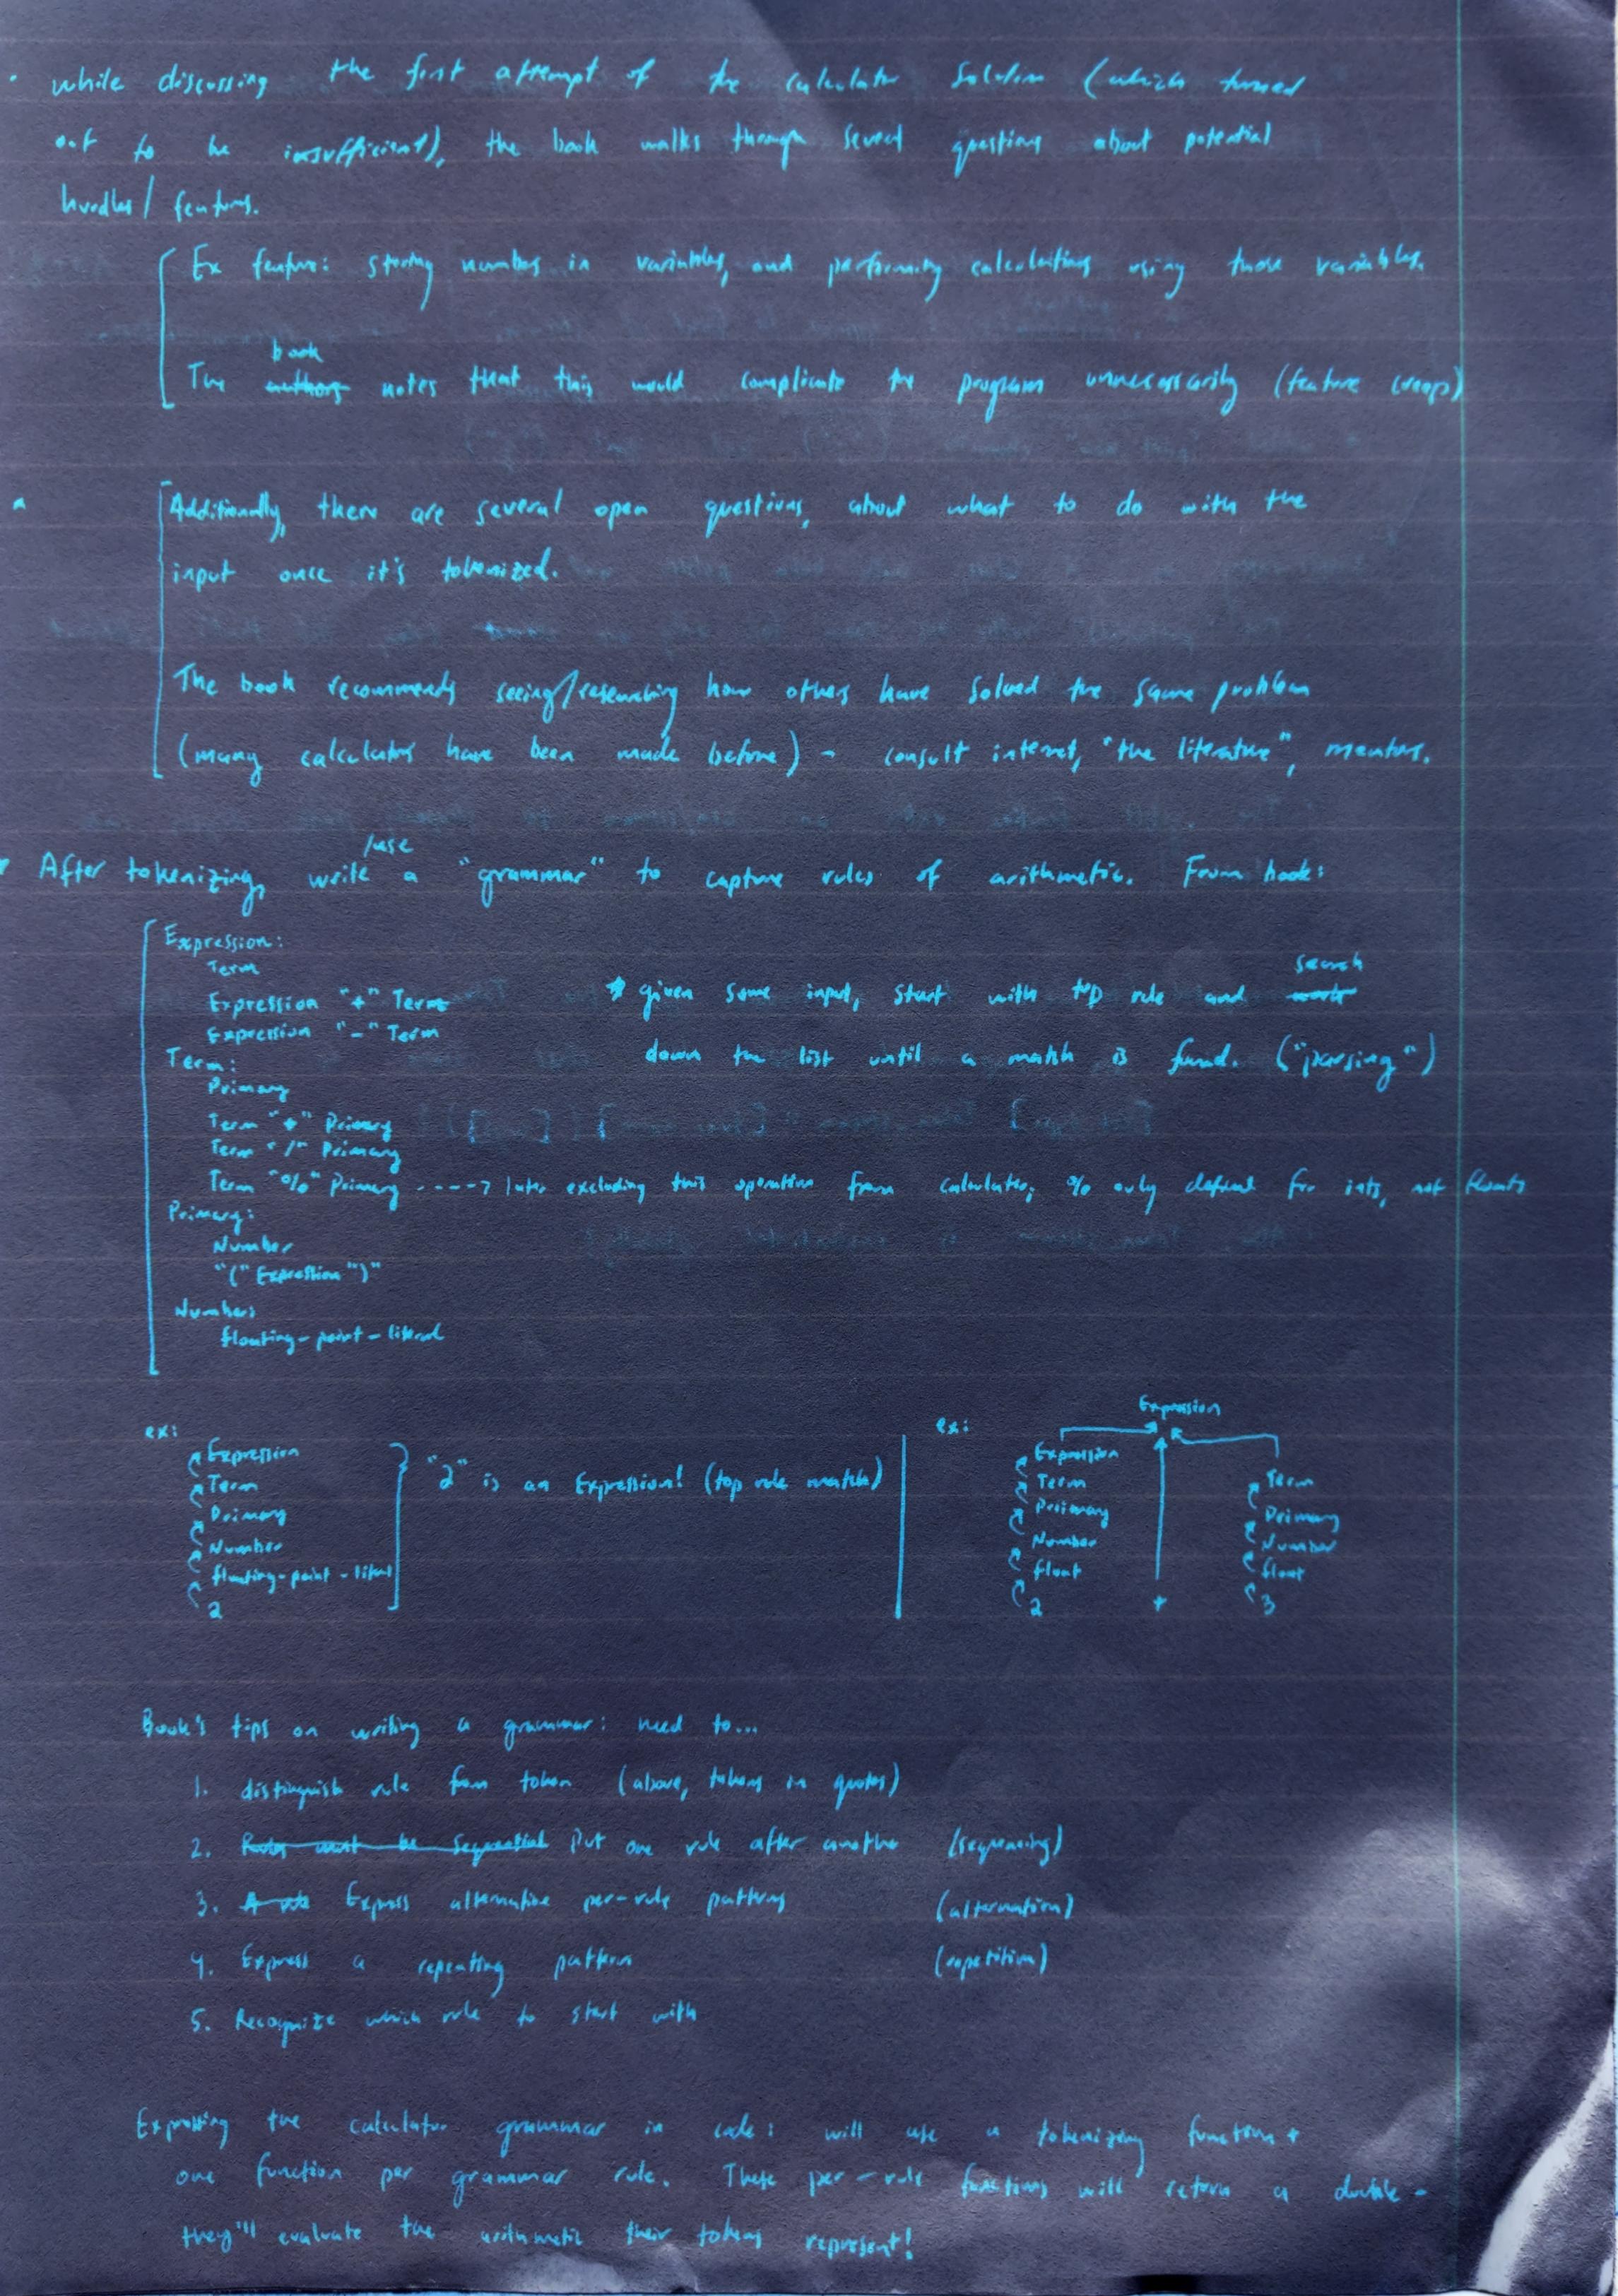 • while discussing the first attempt of the calculator solution (which turned
out to be insufficient), the book walks through several questions about potential
hurdles/features.
Ex feature: storing numbers in variables, and performing calculations using those variables.
book
The authors notes that this would complicate the program unnecessarily (feature creep)
Additionally, there are several open questions, about what to do with the
input once it's tokenized.
The book recommends seeing/researching how others have solved the same problem
(many calculators have been made before) - consult internet, "the literature", mentors.
/use
• After tokenizing, write a "grammar" to capture rules of arithmetic. From book:
Expression:
Term
Expression "+" Term
Expression "-" Term
Term:
Primary
Term "*" Primary
Term "/" Primary
Term "%" Primary ----> later excluding this operation from calculator; % only defined for ints, not floats
Primary:
Number
"(" Expression ")"
Number:
floating-point-literal
search
* given some input, start with top rule and work
down the list until a match is found. ("parsing")
ex:
Expression
Term
Primary
Number
floating-point-literal
2
"2" is an Expression! (top rule match)
ex:
Expression
Expression
Term
Primary
Number
float
2
+
Term
Primary
Number
float
3
Book's tips on writing a grammar: need to...
1. distinguish rule from token (above, tokens in quotes)
2. Rules must be sequential Put one rule after another (sequencing)
3. A rule Express alternative per-rule patterns (alternation)
4. Express a repeating pattern (repetition)
5. Recognize which rule to start with
Expressing the calculator grammar in code: will use a tokenizing function +
one function per grammar rule. These per-rule functions will return a double -
they'll evaluate the arithmetic their tokens represent!